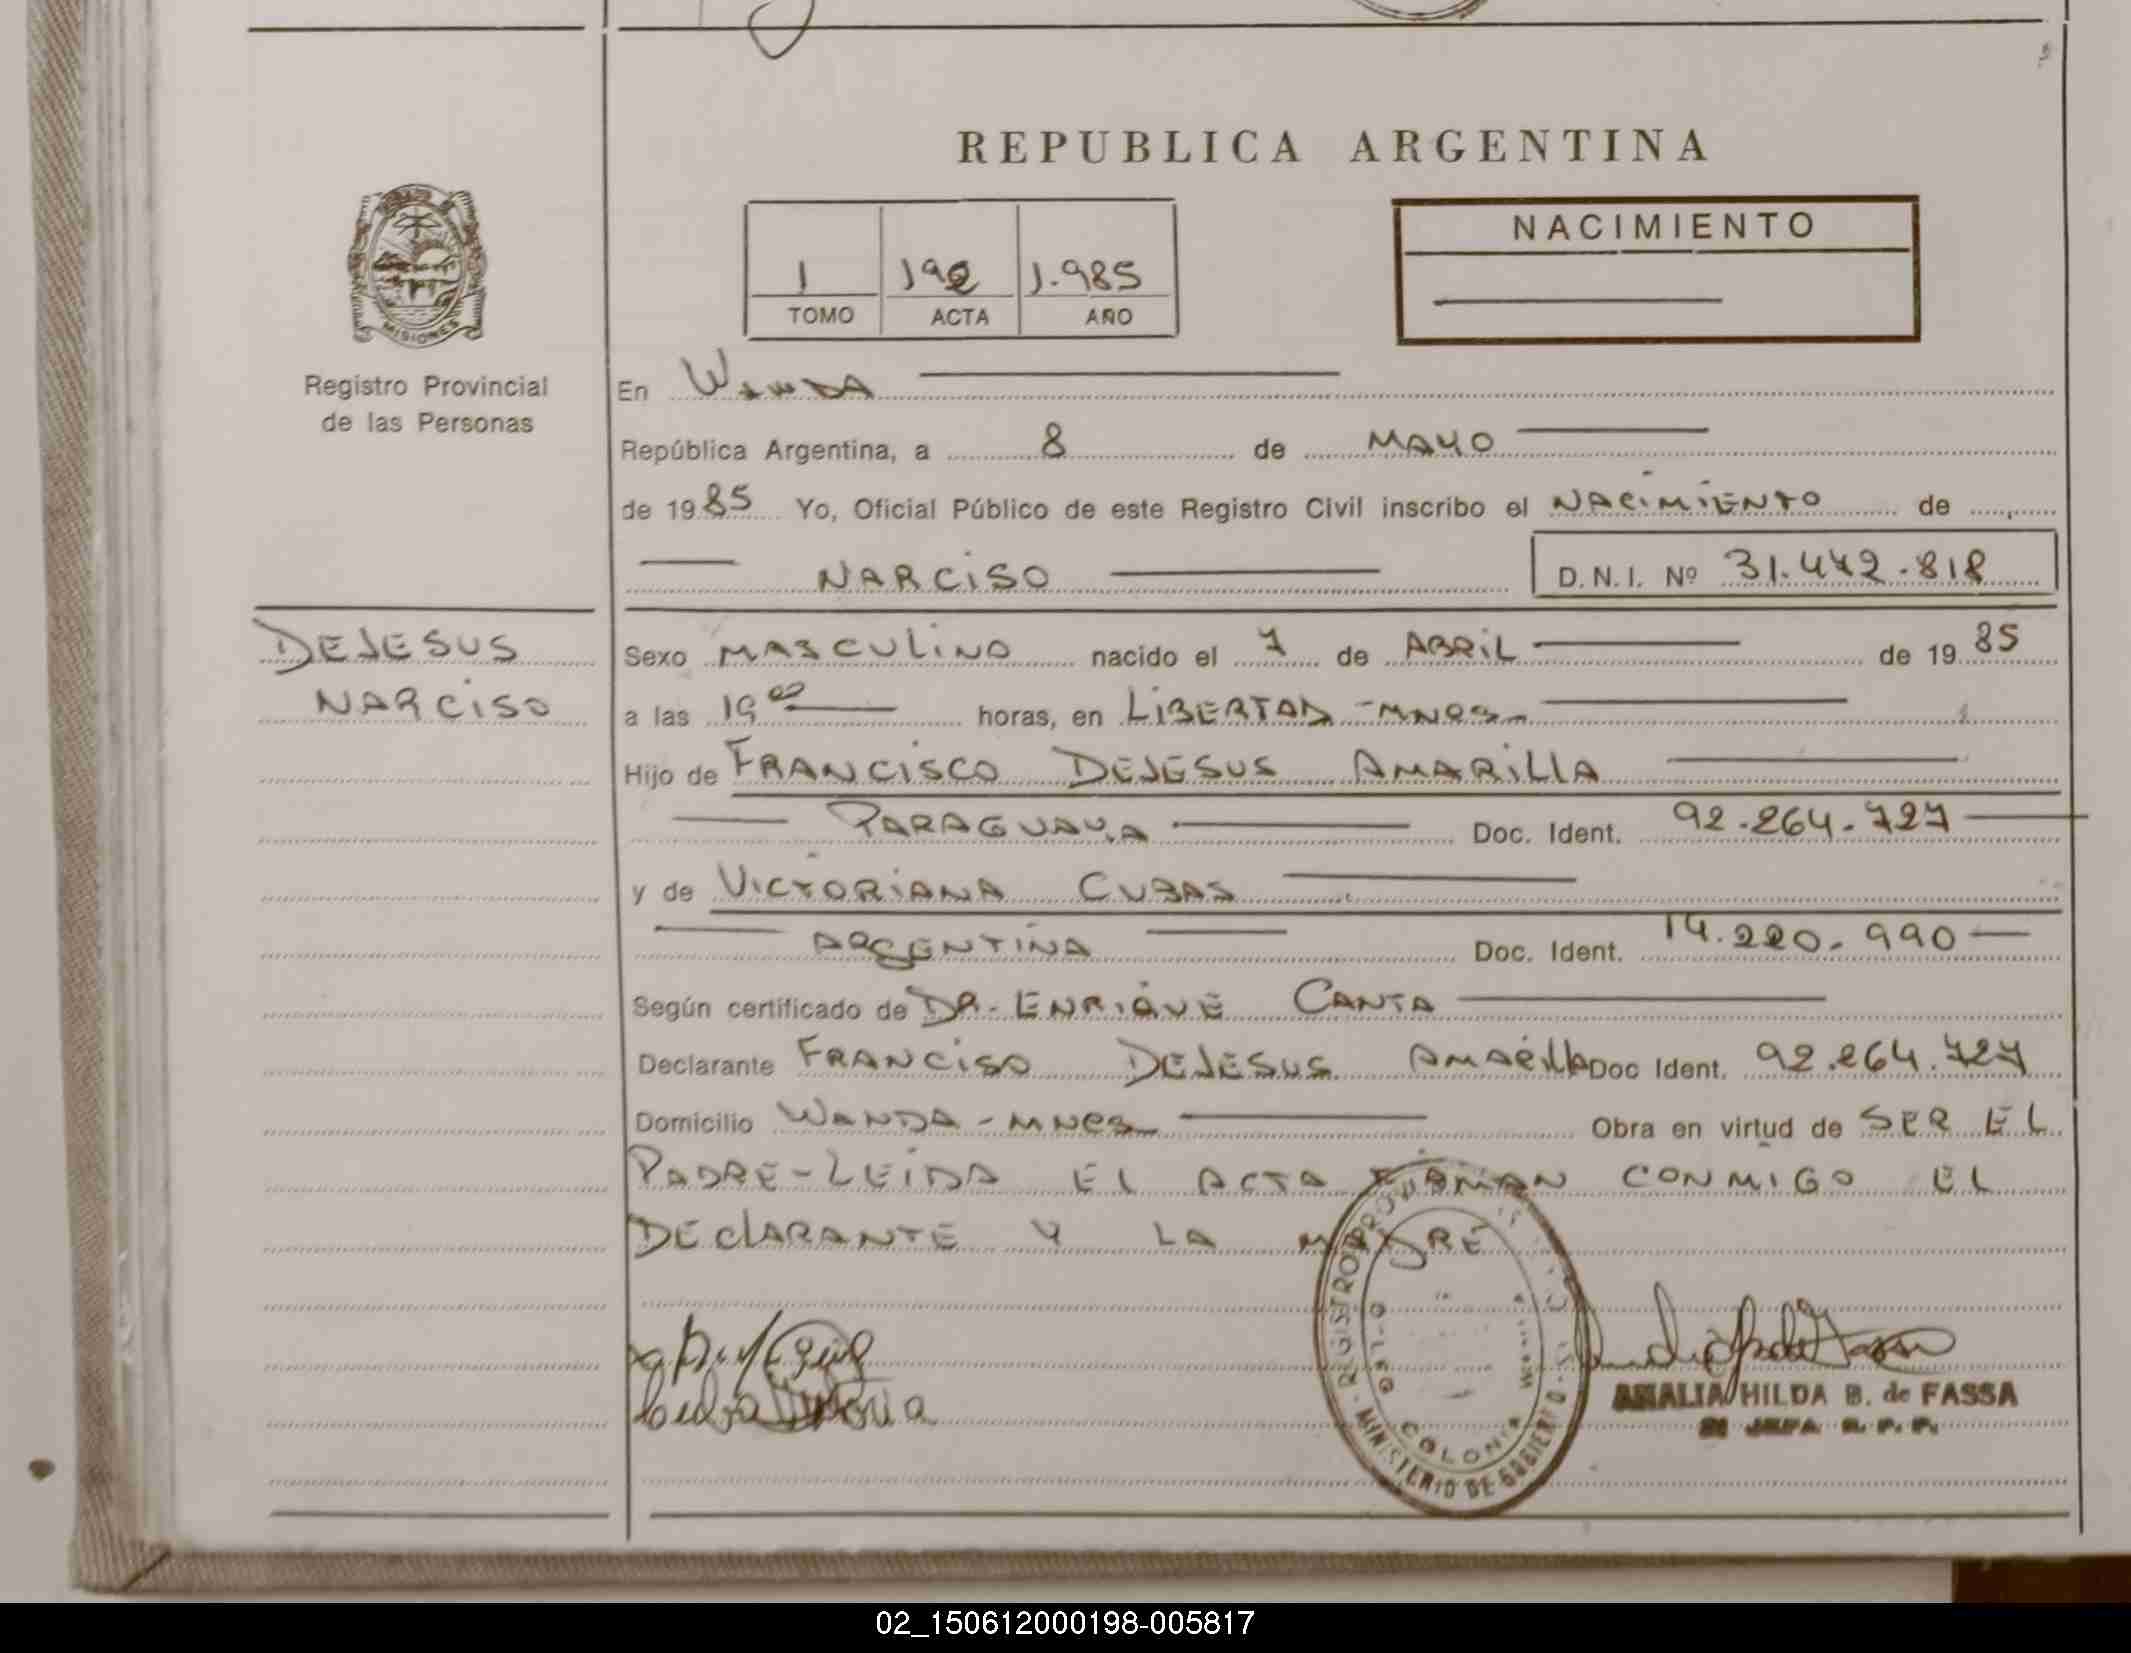 REPUBLICA ARGENTINA
MISIONES
Registro Provincial
de las Personas
1 192 1.985
TOMO ACTA AÑO
NACIMIENTO
En WANDA
República Argentina, a 8 de MAYO
de 1985 Yo, Oficial Público de este Registro Civil inscribo el NACIMIENTO de
NARCISO D.N.I. Nº 31.442.818
DEJESUS
NARCISO
Sexo MASCULINO nacido el 7 de ABRIL de 1985
a las 19 00 horas, en LIBERTAD - MNES
Hijo de FRANCISCO DEJESUS AMARILLA
PARAGUAYA Doc. Ident. 92.264.727
y de VICTORIANA CUBAS
ARGENTINA Doc. Ident. 14.220.990
Según certificado de DR. ENRIQUE CANTA
Declarante FRANCISO DEJESUS AMARILLA Doc Ident. 92.264.727
Domicilio WANDA - MNES Obra en virtud de SER EL
PADRE - LEIDA EL ACTA FIRMAN CONMIGO EL
DECLARANTE Y LA MADRE
MINISTERIO DE GOBIERNO
COLONIA
AMALIA HILDA B. de FASSA
JEFA R. P. P.
02_150612000198-005817